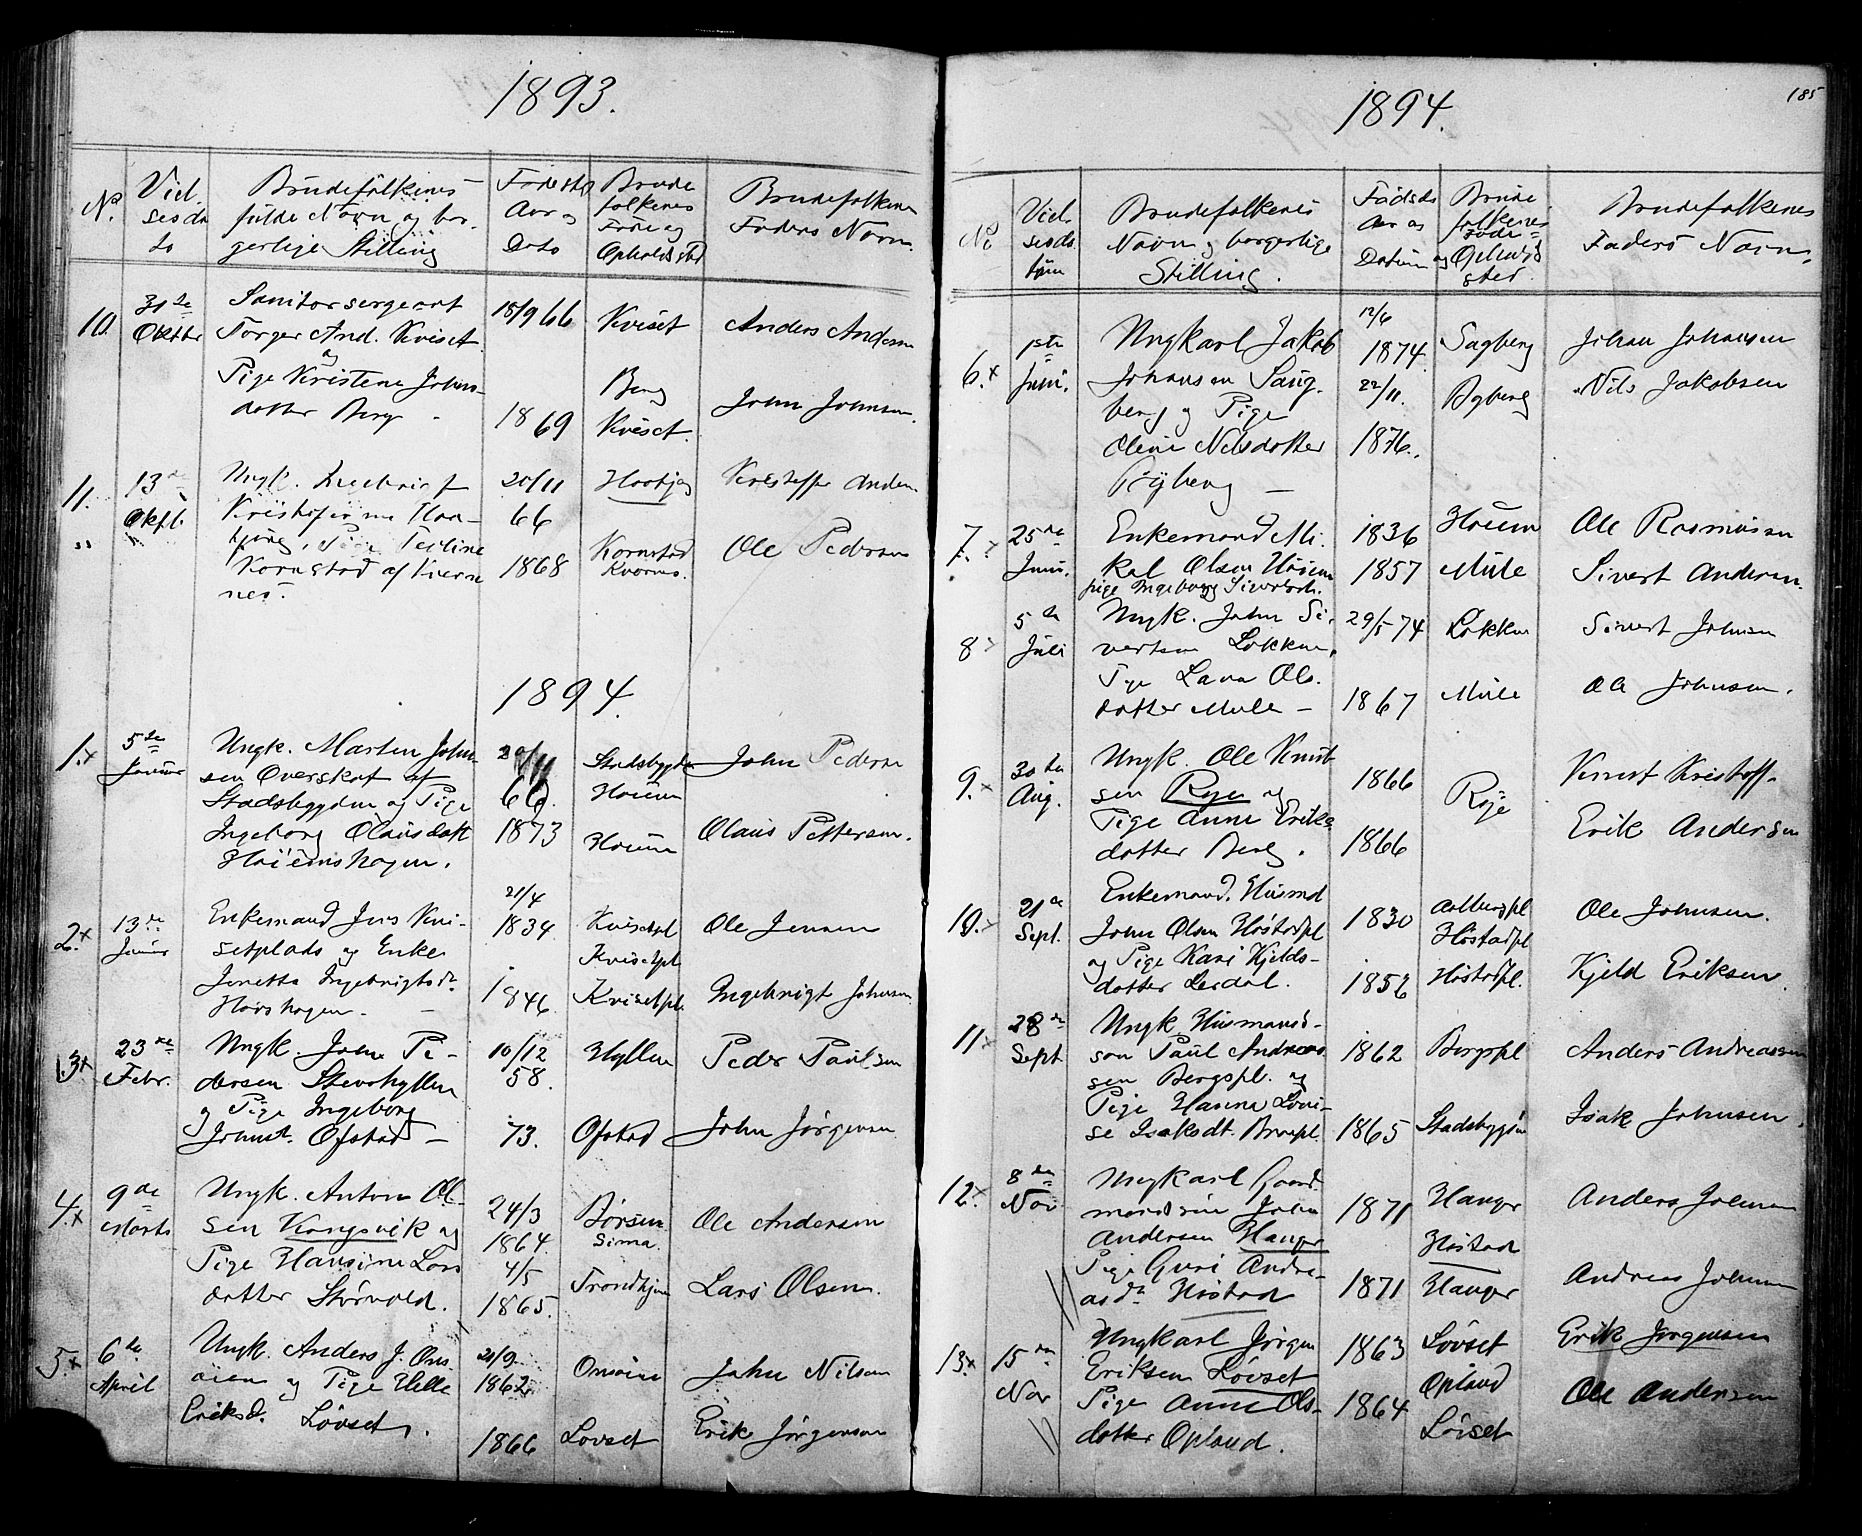 1893.
N.
Viel.
sesda
to
Brudefolkenes
fulde Navn og bor-
gerlige Stilling
Fødested
Aar og
Dato
Brude
folkenes
Føde og
Opholdssted
Brudefolkenes
Faders Navn
10.
31te
Oktbr
Sanitorsergeant
Torger And. Kviset
og
Pige Kristene Johns-
datter Berg
18/9 66
1869
Kviset
Berg
Kviset
Anders Andersen
John Johnsen
11.
13de
Oktb.
Ungk.
Kornstad af Kverne
nes.
20/11
66
1868
Kornstad
Kvernes.
Kristoffer Anders
Ole Pedersen
1894.
1.x
5te
Januar
Ungk. Martin John-
sen Overskot af
Stadsbygden og Pige
Ingeborg Olausdatt
Høiemshagen.
66.
1873
Stadsbygden
Høiem
Høiem
John Pedersen
Olaus Pettersen.
2.x
13de
Januar
Enkemand Jens Kvi-
setplads og Enke
Jenetta Ingebrigtsdr
21/4
1834
1846
Kvisetpl
Kvisetpl
Kvisetpl.
Ole Jensen
Ingebrigt Johnsen
3.x
23de
Febr.
Ungk. John Pe-
dersen Steorhyllen
og Pige Ingeborg
Johnsd. Ofstad
10/12
58.
73.
Hyllen
Ofstad
Peder Paulsen
John Jørgensen
4.x
9de
Marts
Ungk. Anton Ol-
sen Kongsvik og
Pige Hansine Lars
datter Størvold.
24/3
1864.
4/5
1865.
Børsen
Trondhjem
Ole Andersen
Lars Olsen.
5.x
6te
April
Ungk. Anders J. Ons-
øien og Pige Helle
Eriksd. Løvset.
21/9
1862
1866
Onsøien
Lovset
John Nilsen
Erik Jørgensen
1894.
185
No
Viel-
sesda-
tum
Brudefolkenes
Navn og borgerlige
Stilling.
Fødsels
Aar og
Datum
Brude-
folkenes
Føde-
og Opholds
sted.
Brudefolkenes
Faders Navn.
6.x
1ste
Juni.
Ungkarl Jakob
Johansen Saug-
berg og Pige
Oline Nilsdatter
Byberg
12/6
1874.
22/11.
1876.
Sagberg
Byberg
Johan Johansen
Nils Jakobsen
7.x
25de
Juni.
Enkemand Mi-
kal Olsen Høiem
pige Ingeborg Sivertsd.
1836
1857
Høiem
Mule
Ole Rasmussen
Sivert Andersen.
8
5te
Juli
Ungk. John Si-
vertsen Løkken,
Pige Lava Ols-
datter Mule
29/5 74
1867
Løkken
Mule
Sivert Johnsen
Ole Johnsen.
9.x
30te
Aug.
Ungk. Ole Knut-
sen Røye og
Pige Anne Eriks
datter Berg.
1866
1866
Røje
Knut Kristoff-
Erik Andersen
10.x
21de
Sept.
Enkemand, Husmd
John Olsen Høstadpl
og Pige Kari Kjelds-
datter Leidal.
1830
Høstadpl
Høstadpl.
Ole Johnsen.
Kjeld Eriksen.
11x
28de
Sept
Ungk. Husmands-
søn Paul Andreas-
sen Bergspl. og
Pige Hanna Lovi-
se Isaksdt.
1862
1865
Bergspl
Stadsbygden
Anders Andreassen
Isak Johnsen.
12.x
8de
Nov
Ungkarl Gaard-
mandssøn John
Andersen Hanger
Pige Guri Andre-
asdr. Høstad
1871
1871
Hanger
Høstad
Hanger
Anders Johnsen
Andreas Johnsen
13x
15de
Nov
Ungkarl Jørgen
Eriksen Løvset
Pige Anne Ols-
datter Opland.
1863
1864
Løvset
Opland
Løvset
Erik Jørgensen
Ole Andersen